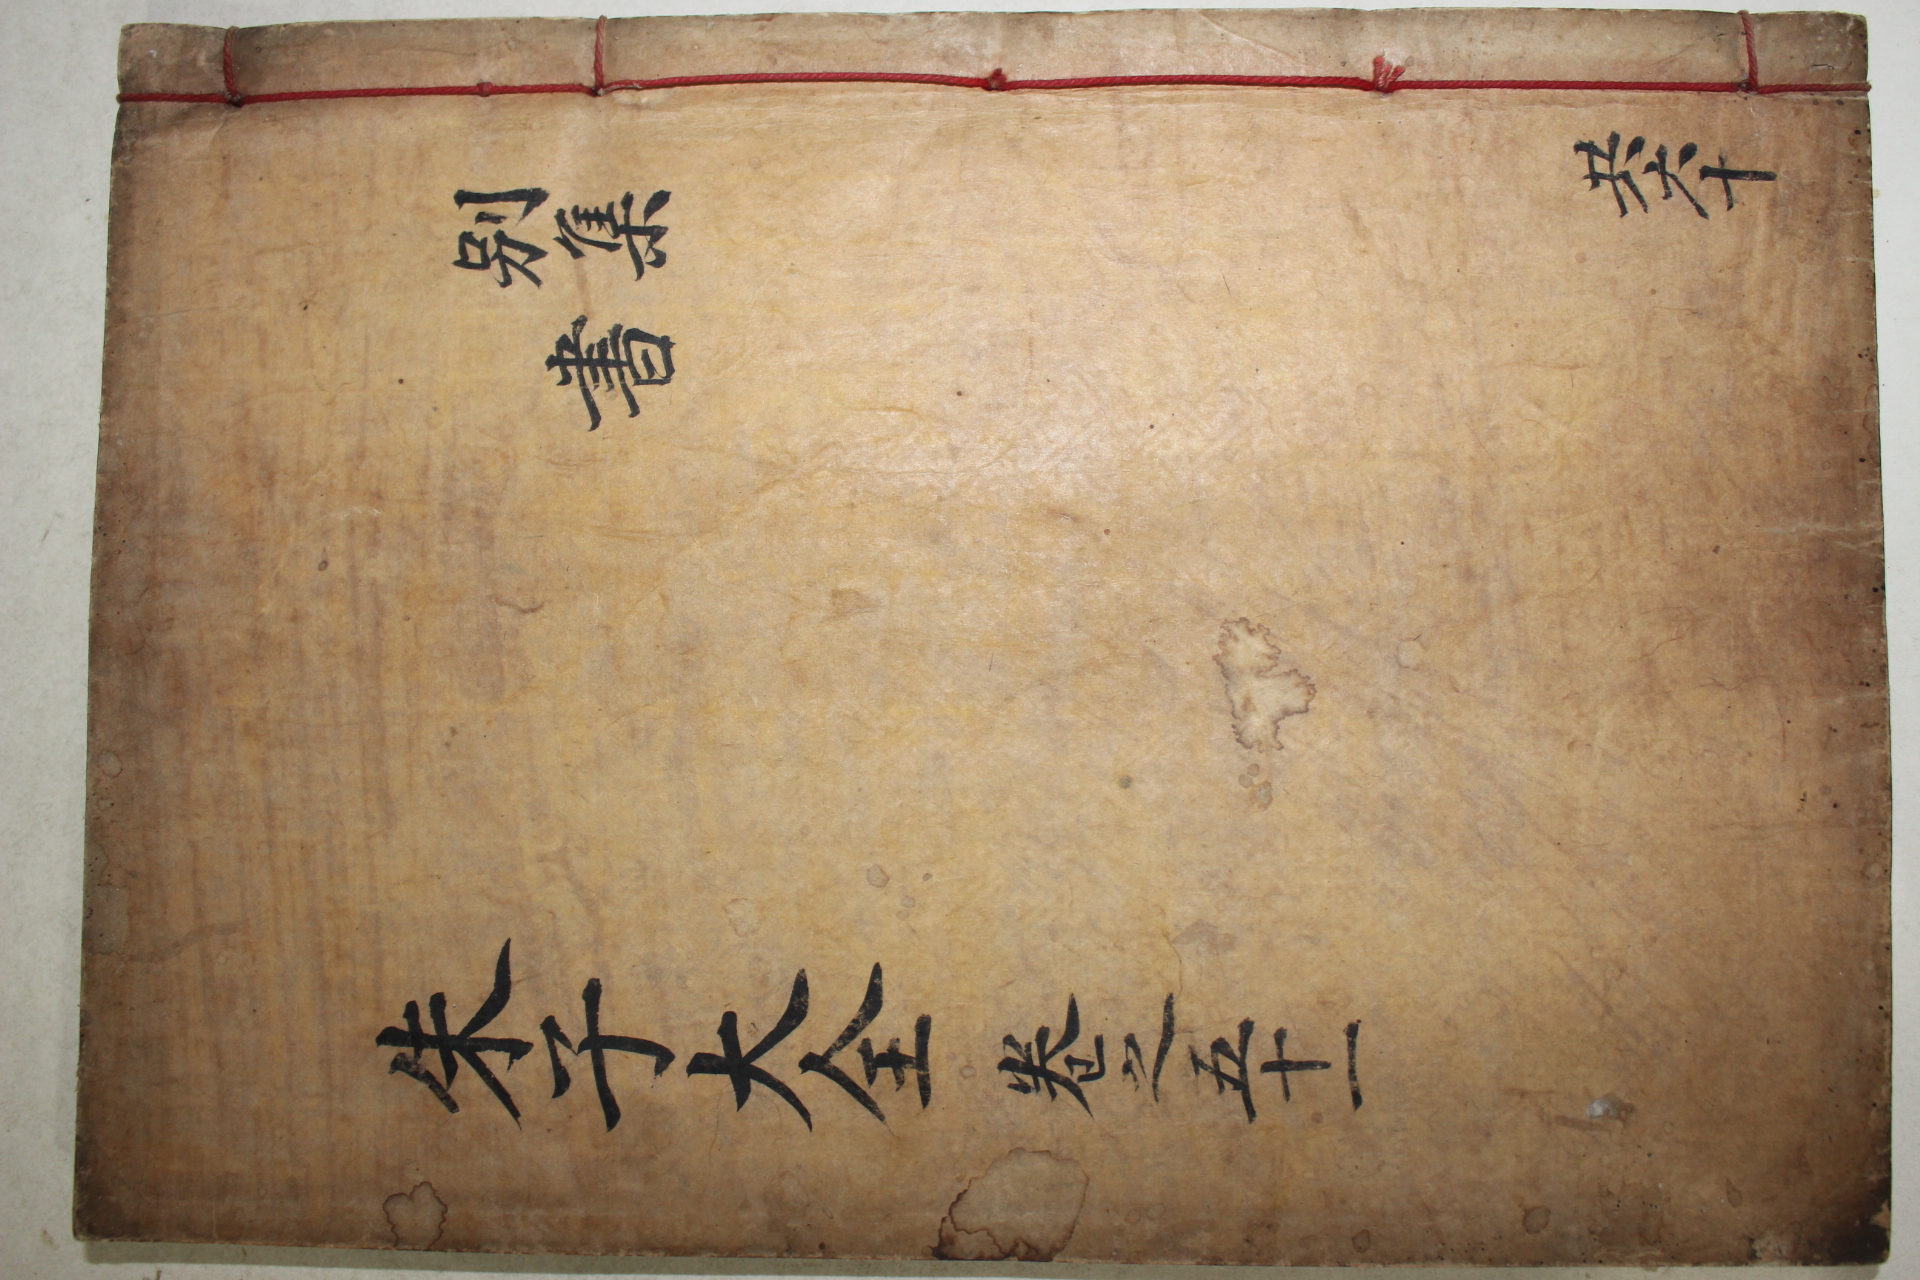 別集
書
共六十
朱子大全 卷之五十一